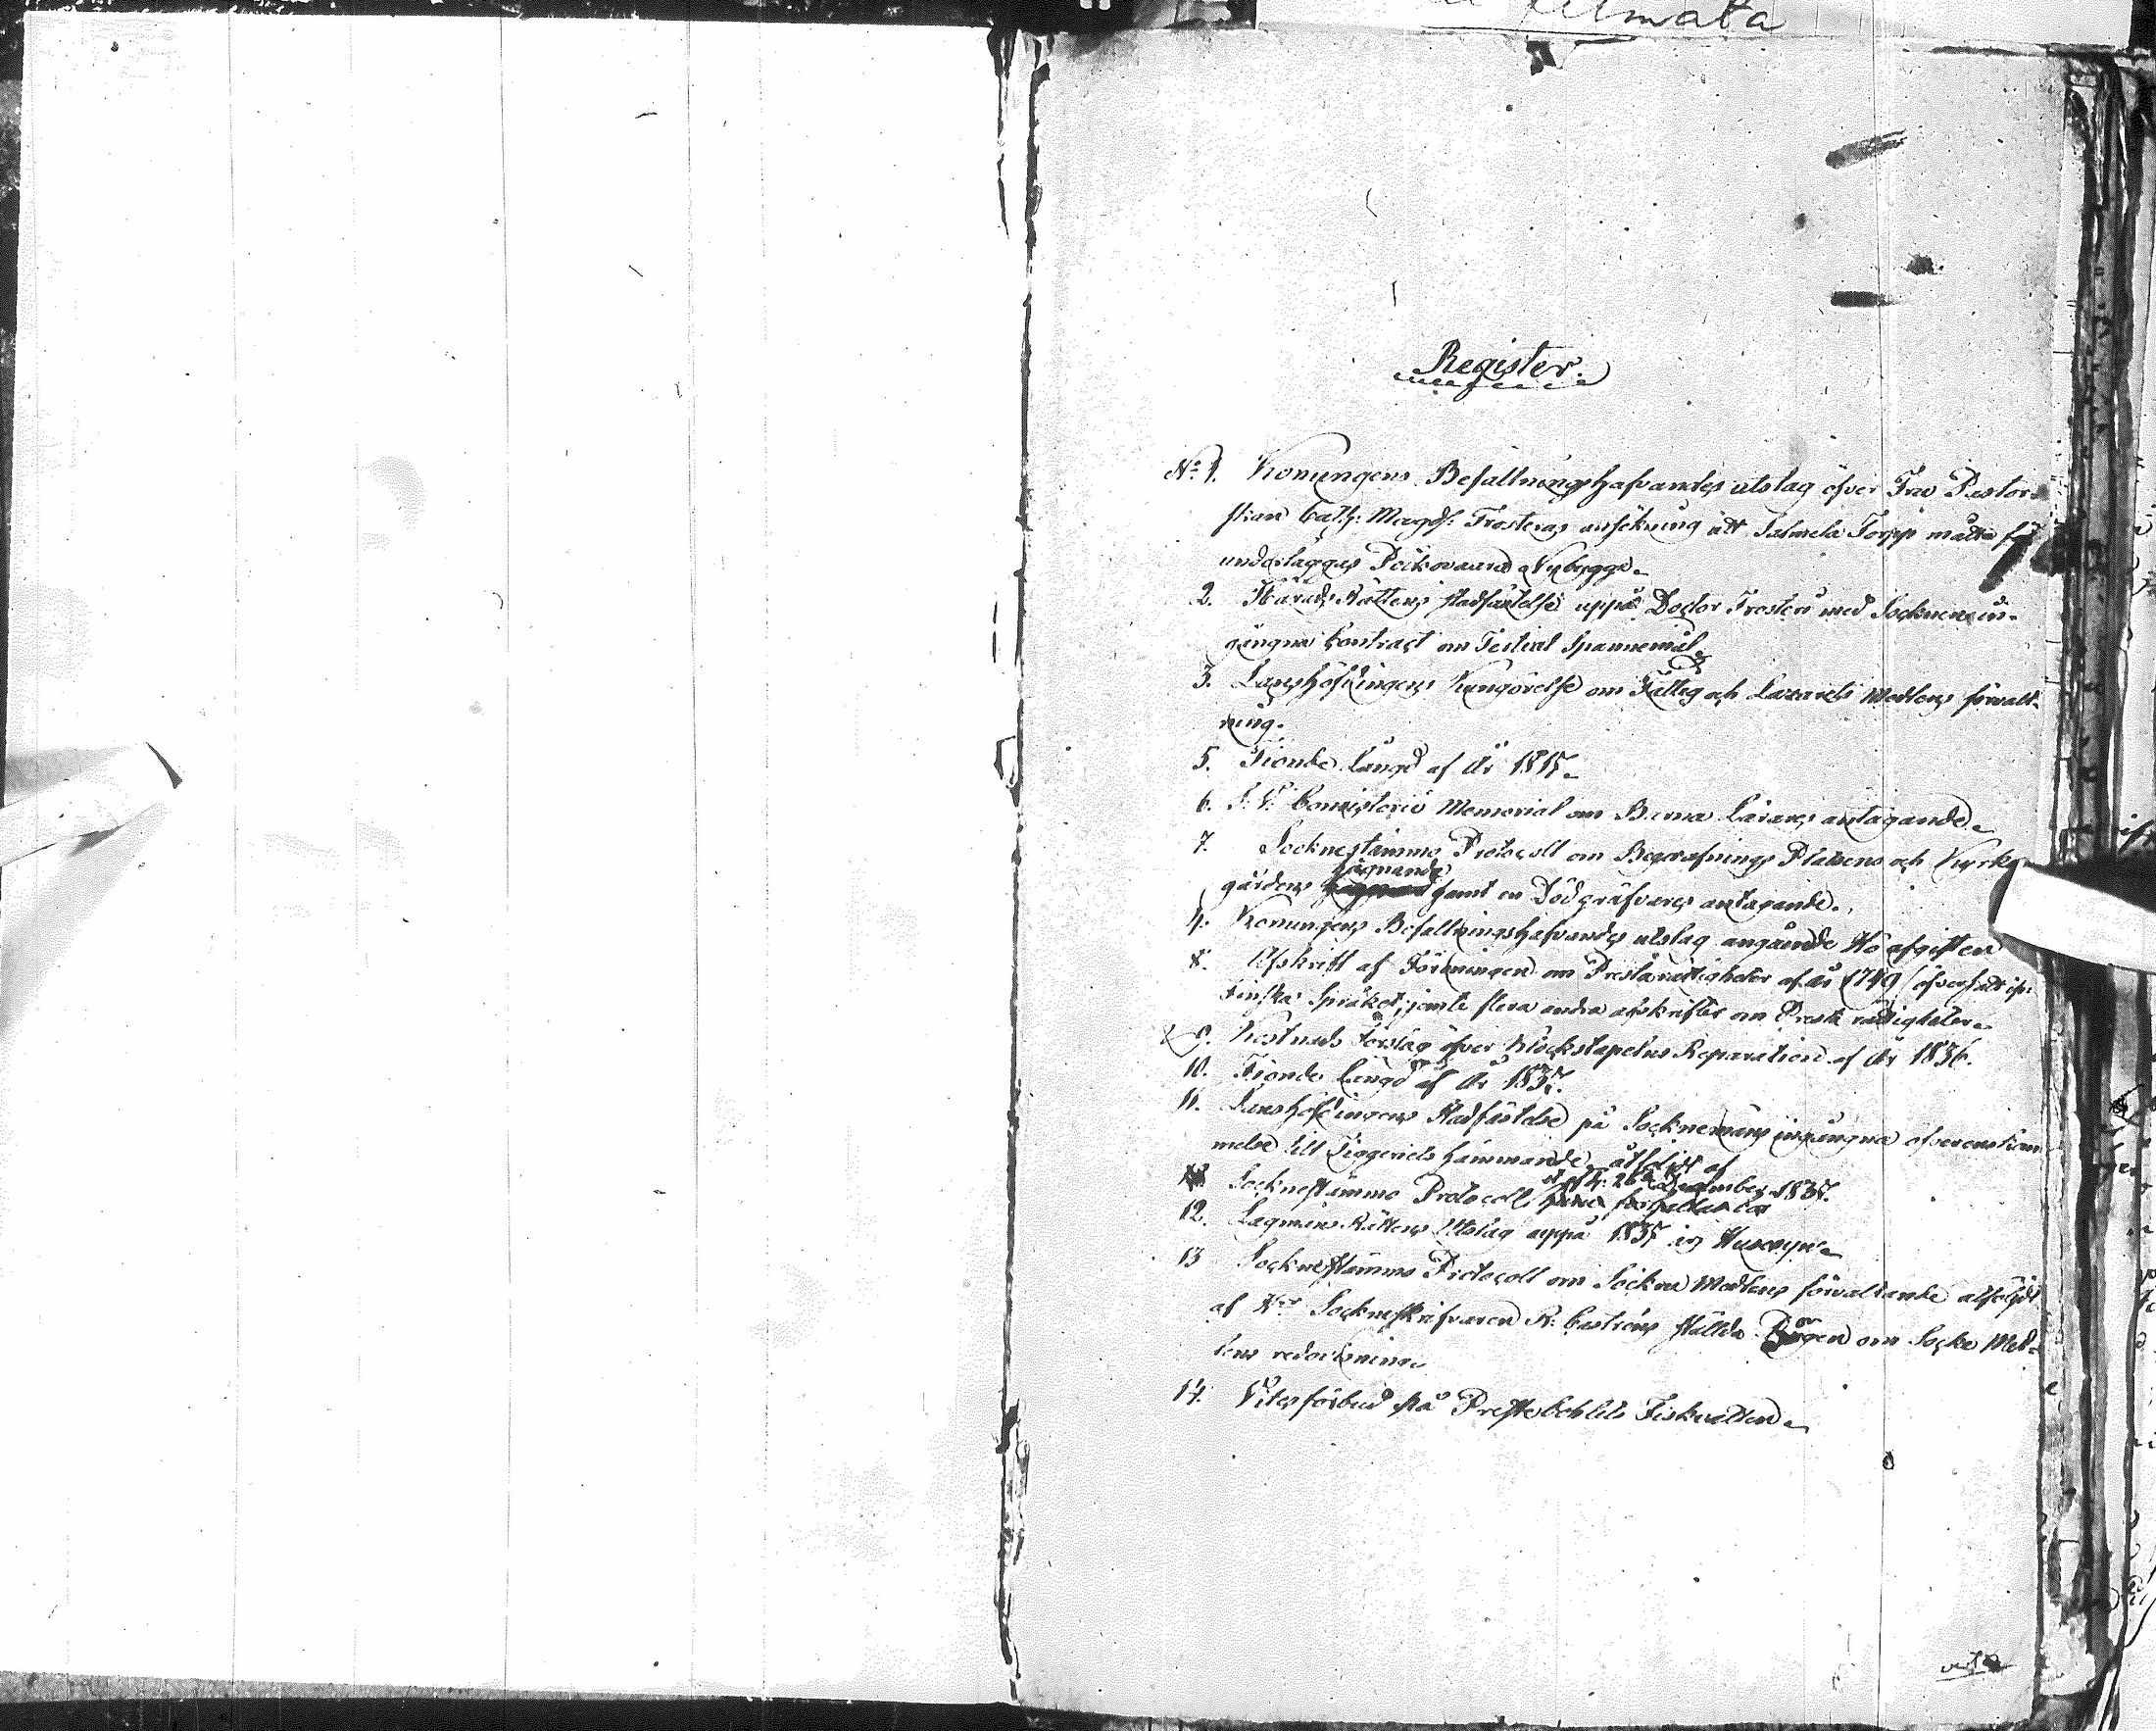 Register.
No 1. Konungens Befallningshafvandes utslag öfver Fru Pastor-
skan Cath: Magd: Frosterus ansökning att Salmela Torpp måtte få
underläggas Nybygge.
2. Härads Rättens stadfästelse uppå Doctor Frosterus med Socknen in-
gångna Contract om Testial Spannemål.
3. Landshöfdingens Kungörelse om Fattig och Lazarets Medlens förvalt-
ning.
5. Tionde Längd af År 1815.
6. S: V: Consistorii Memorial om Barna Lärares antagande.
7. Socknestämmo Protocoll om Begrafnings Platsens och Kyrko
gårdens hägnande samt en Dödgräfvares antagande.
4. Konungens Befallningshafvandes utslag angående Hö afgiften
8. Afskrift af Föreningen om Prestarättigheter af år 1749 / öfversatt
Finska Språket, jemte flera andra afskrifter om Presta rättigheter.
9. Kostnads Förslag öfver Klockstapelns Reparation af År 1836.
10. Tionde Längd af År 1837.
11. Landshöfdingens Stadfästelse på Socknemäns ingångna öfverenskom
melse till Tiggeriets hämmande, åtföljdt af
Socknestämmo Protocoll af d: 26 December 1837.
12. Lagmans Rättens Utslag uppå 1837 Husesyn.
13 Sockneskämmo Protocoll om Sockne Medlens förvaltande åtföljdt
af Hr Sockneskrifvaren K: Castréns ställda Borgen om Sockne Med-
lens redovisning.
14. Vitesförbud på Prestebohlets Fiskvatten.